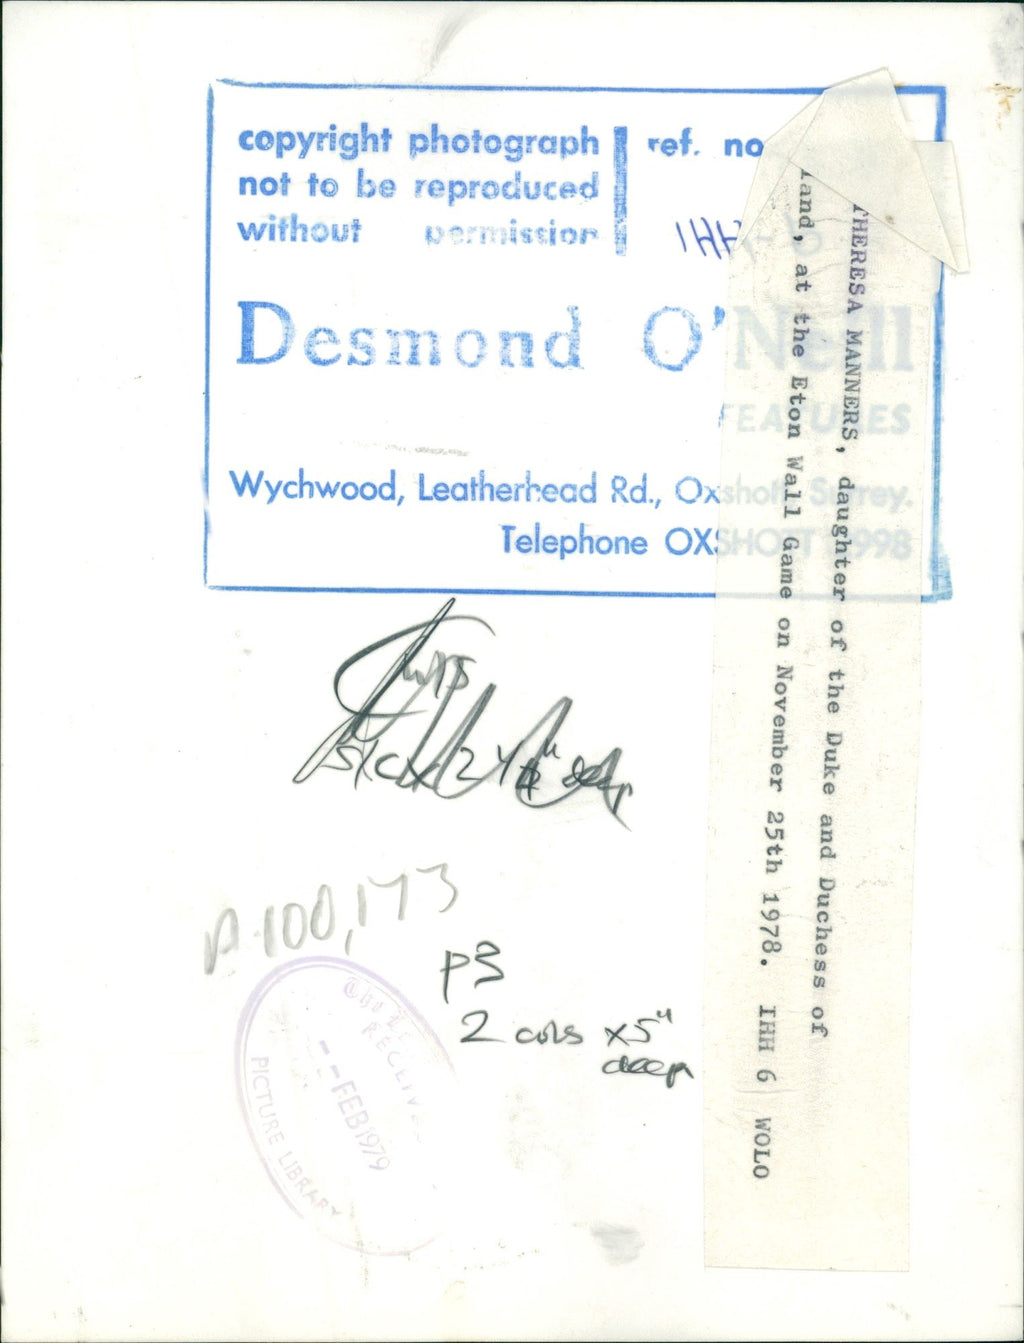 copyright photograph
not to be reproduced
without permission
ref. no
IHH-6
Desmond O'Neill
FEATURES
Wychwood, Leatherhead Rd., Oxshott, Surrey.
Telephone OXSHOTT 2998
THERESA MANNERS, daughter of the Duke and Duchess of
land, at the Eton Wall Game on November 25th 1978. IHH 6 WOLO
P.100,173
p3
2 cols x5"
deep
RECEIVED
-FEB 1979
PICTURE LIBRARY